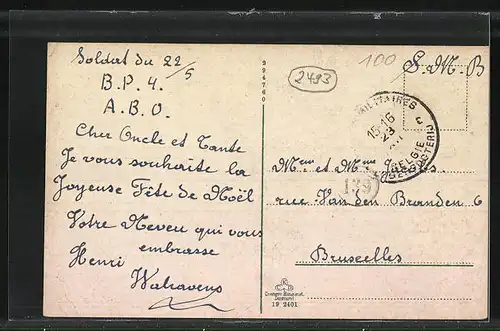 Soldat du 22/5
B.P.4.
A.B.O.
Cher Oncle et Tante
Je vous souhaite la
Joyeuse Fête de Noël
Votre Neveu qui vous
embrasse
Henri
Walravens
294760
2493
100
S.M.B
MILITAIRES
15-16
23
BELGIE
139
Mme et Mr
rue Van den Branden 6
Bruxelles
19 2401